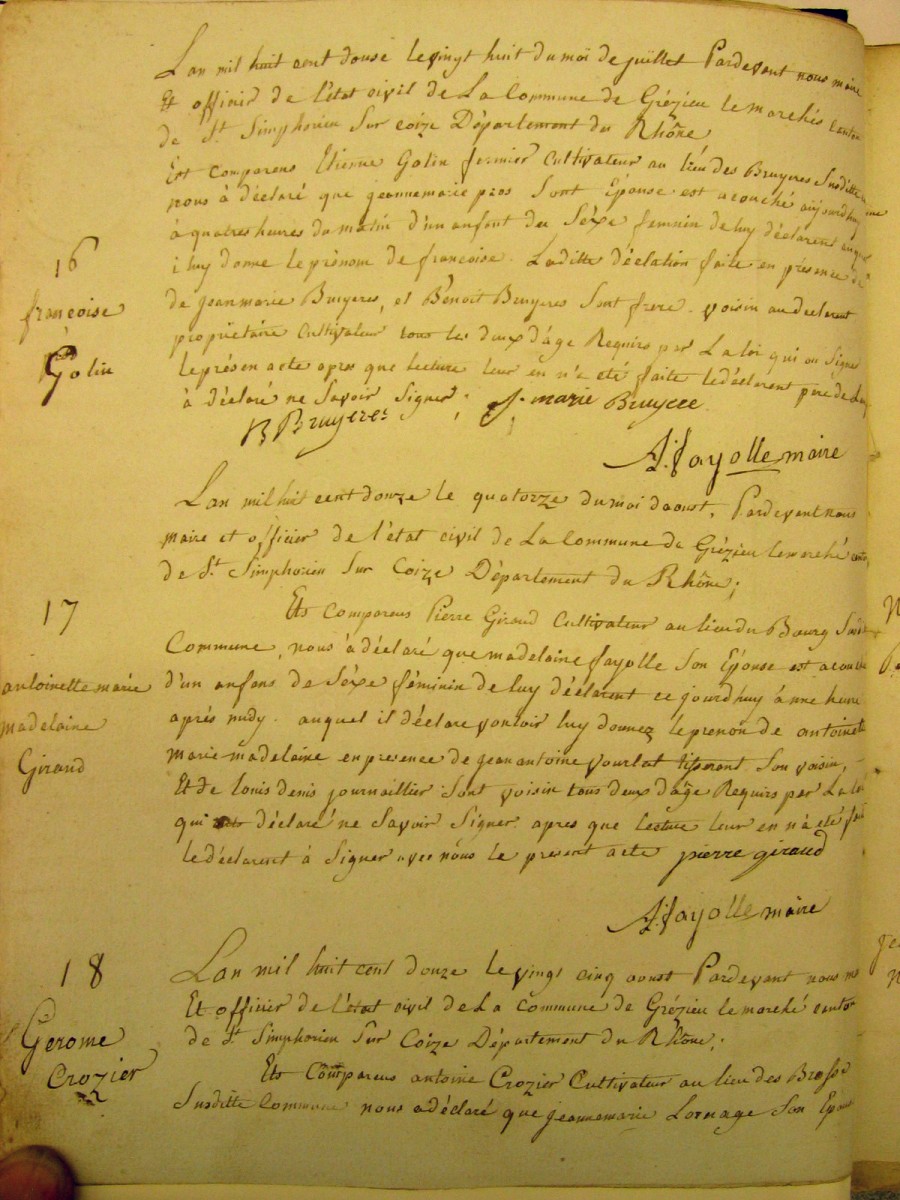 Lan mil huit cent douse le vingt huit du moi de juillet Pardevant nous maire
Et officié de l'état civil de La Commune de Grézieu le marchés canton
de St Simphorien Sur coize Département du Rhône
Est comparens Etienne Golin fermier Cultivateur au lieu des Bruyeres Susditte
nous à déclaré que jeannemarie pros Sont Épouse est acouché aujourdhuy
à quatres heures du matin d'un anfant du Séxe feminin de luy déclarent auquel
i luy donne le prénom de francoise. Laditte déclation faite en présence de
16
francoise
Golin
de jeanmarie Bruyeres, et Bénoit Bruyeres Sont frere. voisin au declarent
propriétaire Cultivateur tous les deux d'âge Requirs par La loi qui on Signer
le présen acte apres que lecture leur en n'a été faite le déclarent pere de
à déclaré ne Savoir Signer;
B Bruyeres J. marie Bruyere
A. fayolle maire
Lan mil huit cent donze le quatorze du moi daoust, Pardevant nous
maire et officier de l'état civil de La Commune de Grézieu lemarché
de St Simphorien Sur Coize Département du Rhône;
17
antoinette marie
madelaine
Giraud
Ets Comparens Pierre Giraud Cultivateur au lieu du Bourg
Commune, nous à déclaré que madelaine fayolle Son Epouse est acouché
d'un anfans de Séxe féminin de luy déclarent ce jourdhuy à une heure
aprés midy. auquel il déclare vouloir luy donnez le prenon de antoinette
marie madelaine en presence de jean antoine vourlat Son voisin,
Et de louis denis journaillier Sont voisin tous deux d'âge Requirs par La loi
qui déclaré ne Savoir Signer apres que lecture leur en n'à eté
le déclarent à Signer avec nous le present acte pierre giraud
A. fayolle maire
18
Gerome
Crozier
Lan mil huit cent donze le vingt cinq aoust Pardevant nous
Et officier de l'état civil de La Commune de Grézieu le marché canton
de St Simphorien Sur Coize Département du Rhône;
Ets Comparens antoine Crozier Cultivateur au lieu des Brosse
Susditte Commune nous a déclaré que jeannemarie Lornage Son Epouse